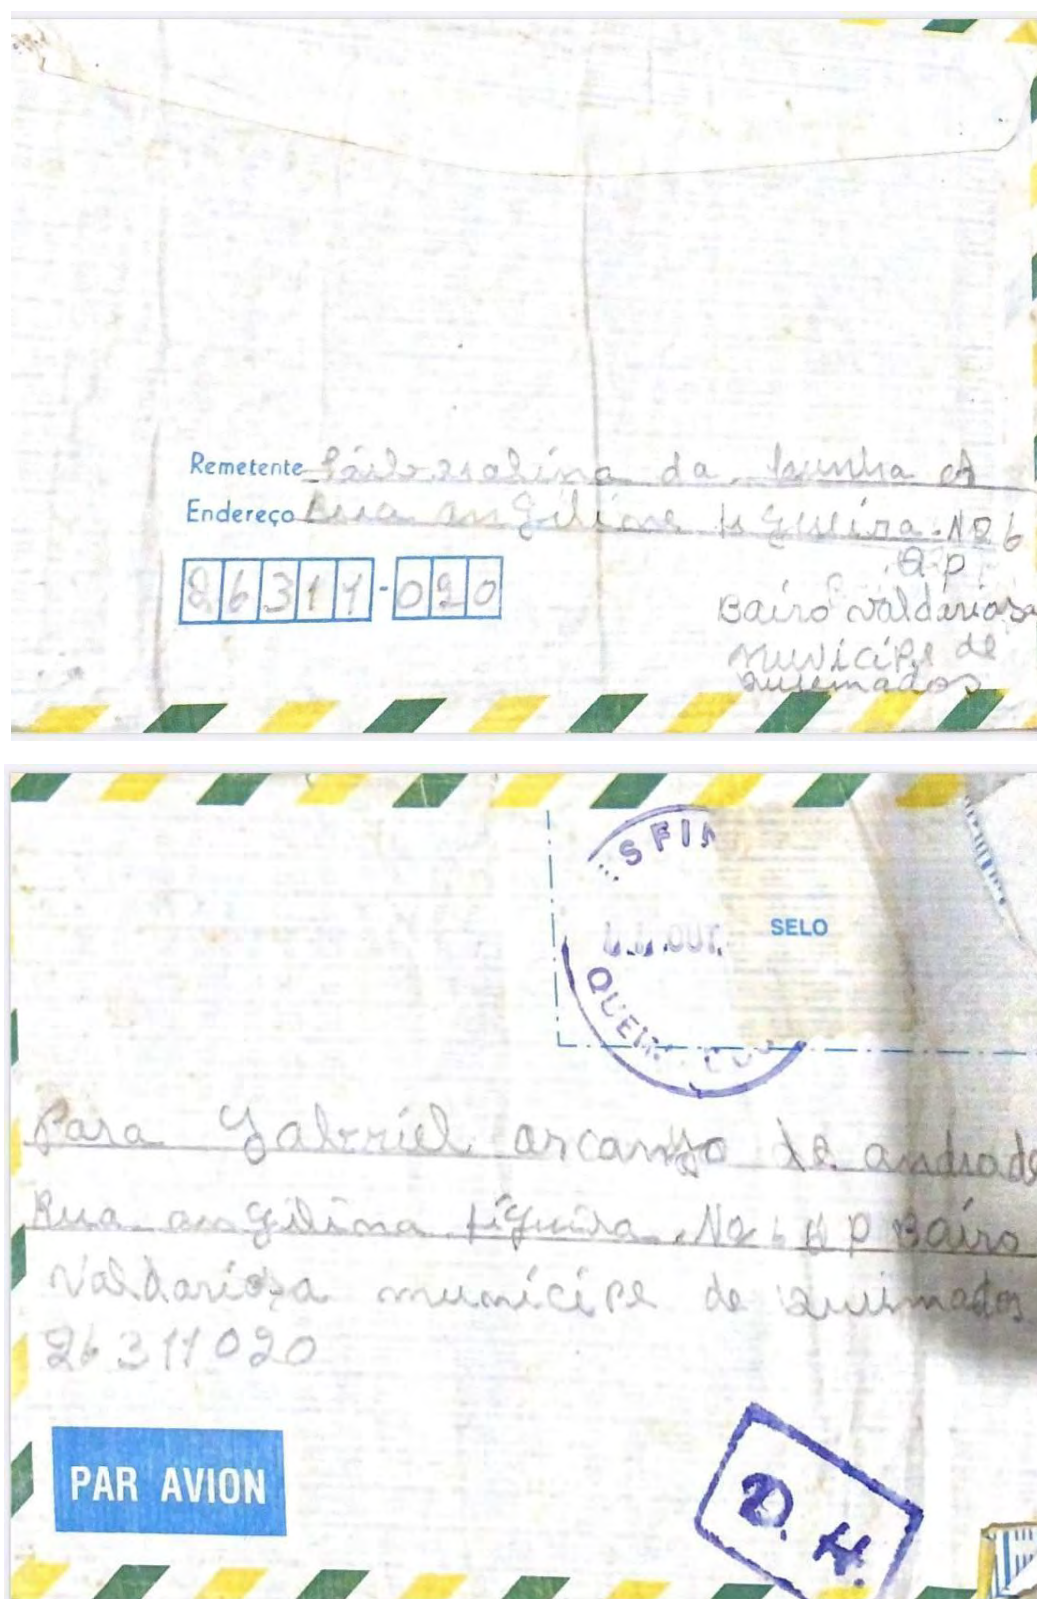 Remetente da Cunha
Endereço Rua angilina figueira. Nº 6
26311-020
ap
Bairo valdariosa
municipe de
queimados
SELO
OUT.
Para Gabriel arcanjo de andrade
Rua angilina figueira. Nº 6 ap Bairo
Valdariosa municipe de quimados
26311020
PAR AVION
D. H.